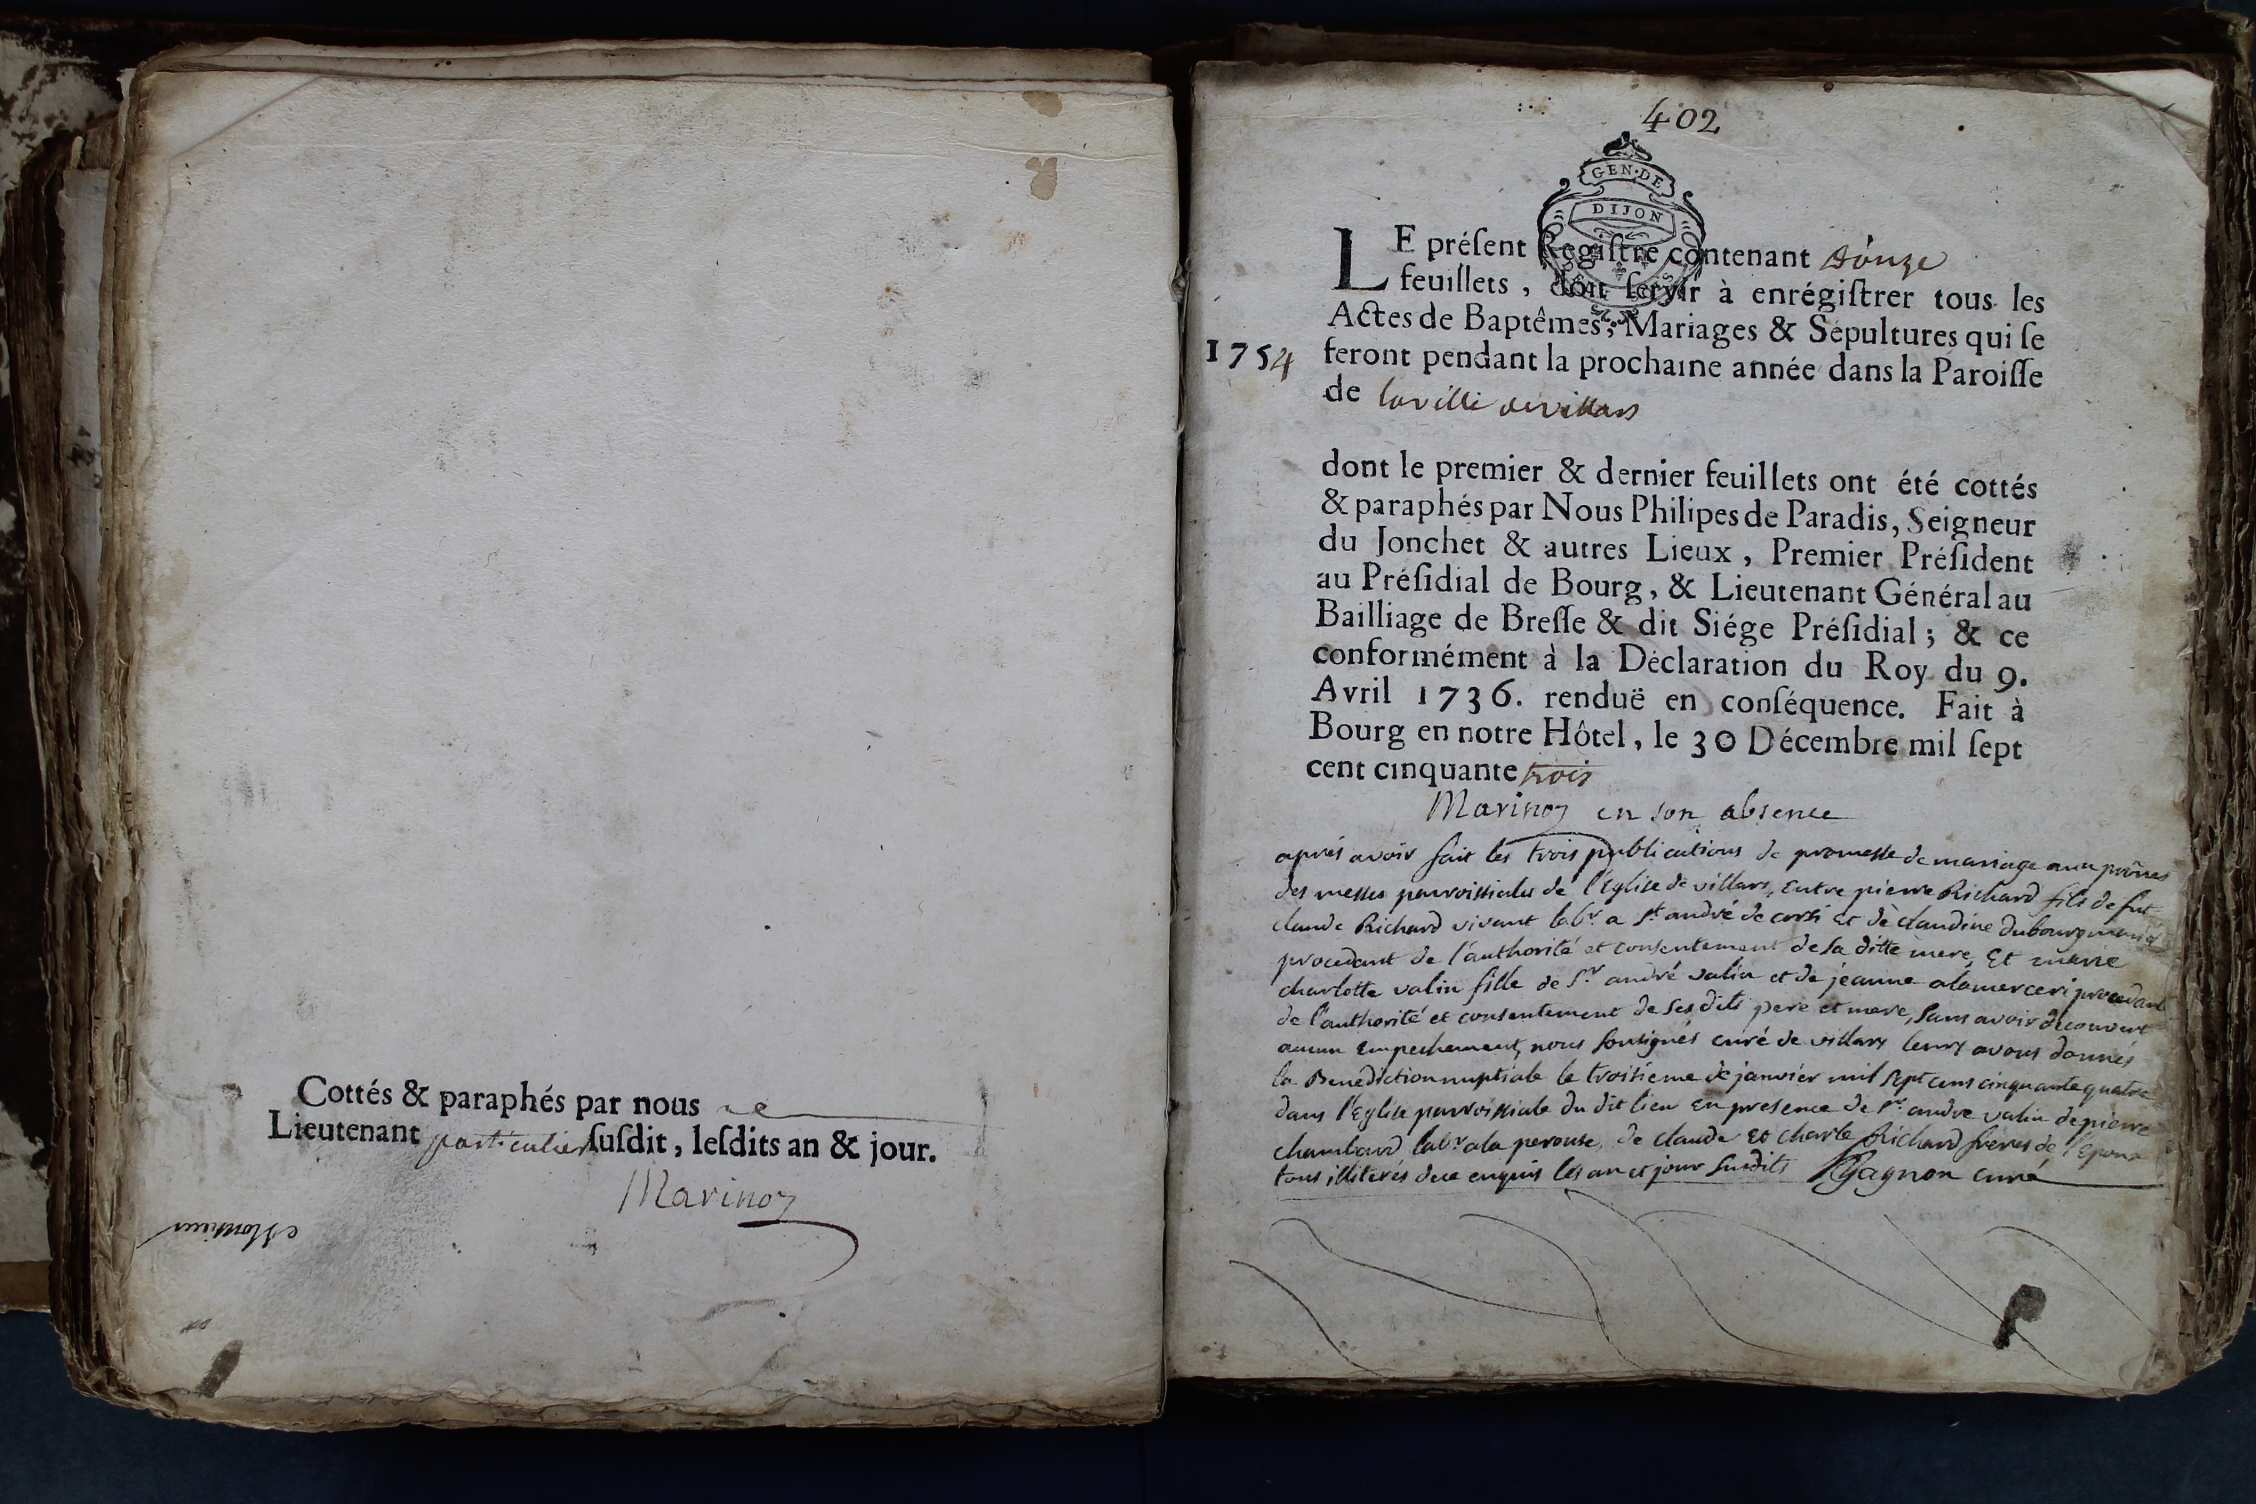 Cottés & paraphés par nous
Lieutenant particulier ſuſdit, leſdits an & jour.
Marinon
Monsieur
402
GEN·DE
DIJON
LE préſent Regiſtre contenant douze
feuillets, doit ſervir à enrégiſtrer tous les
Actes de Baptêmes, Mariages & Sépultures qui ſe
1754 feront pendant la prochaine année dans la Paroiſſe
de la ville de villars
dont le premier & dernier feuillets ont été cottés
& paraphés par Nous Philipes de Paradis, Seigneur
du Jonchet & autres Lieux, Premier Préſident
au Préſidial de Bourg, & Lieutenant Général au
Bailliage de Breſſe & dit Siége Préſidial; & ce
conformément à la Déclaration du Roy du 9.
Avril 1736. renduë en conſéquence. Fait à
Bourg en notre Hôtel, le 30 Décembre mil ſept
cent cinquante trois
Marinon en son absence
aprés avoir fait les trois publications de promesse de mariage aux prônes
des messes parroissiales de l'Eglise de villars, Entre pierre Richard fils de fut
claude Richard vivant labr a st andré de corsi et de claudine dubourg
procedant de l'authorité et consentement de sa ditte mere, Et marie
charlotte valin fille de Sr andré valin et de jeanne alamerceri procedant
de l'authorité et consentement de ses dits pere et mere, sans avoir découvert
aucun Empechement, nous soussignés curé de villars leurs avons donnés
la Benediction nuptiale le troisieme de janvier mil sept cens cinquante quatre
dans l'Eglise parroissiale du dit lieu En presence de sr. andre valin de pierre
chambard labr a la perouse, de claude et charle Richard freres de l'Epoux
tous illiterés de ce enquis les an et jour susdits Gagnon curé